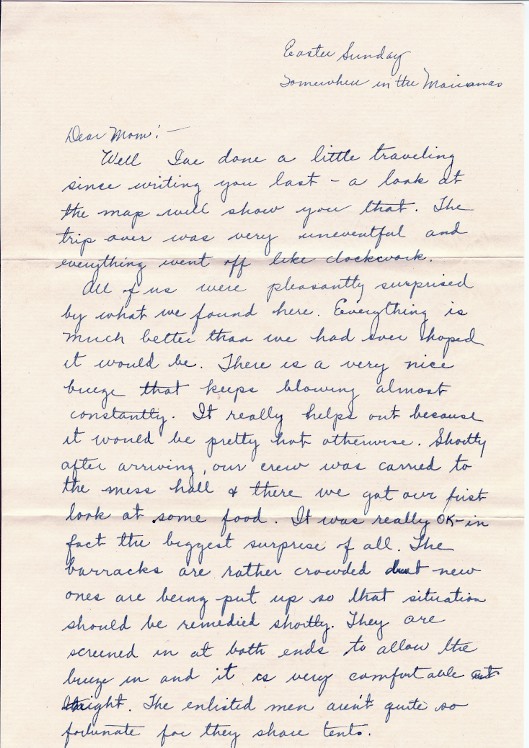 Easter Sunday
Somewhere in the Marianas
Dear Mom: —
Well I've done a little traveling
since writing you last – a look at
the map will show you that. The
trip over was very uneventful and
everything went off like clockwork.
All of us were pleasantly surprised
by what we found here. Everything is
much better than we had ever hoped
it would be. There is a very nice
breeze that keeps blowing almost
constantly. It really helps out because
it would be pretty hot otherwise. Shortly
after arriving, our crew was carried to
the mess hall & there we got our first
look at some food. It was really OK–in
fact the biggest surprise of all. The
barracks are rather crowded but new
ones are being put up so that situation
should be remedied shortly. They are
screened in at both ends to allow the
breeze in and it is very comfortable at
night. The enlisted men aren't quite so
fortunate for they share tents.